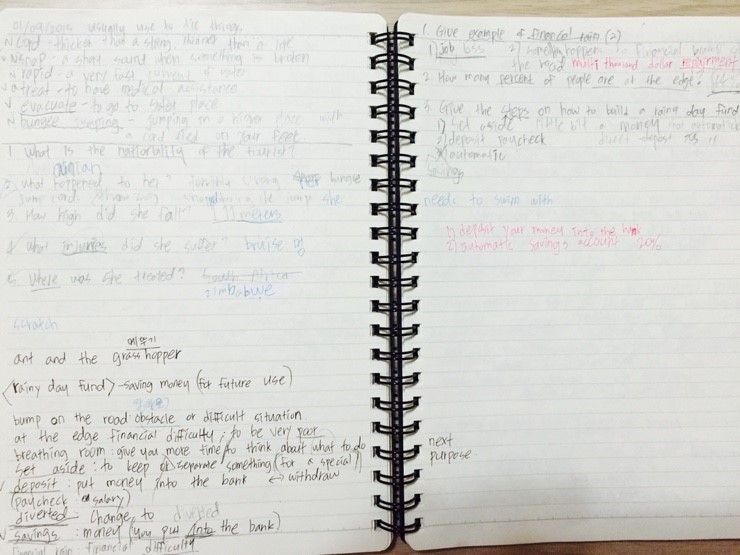 01/09/2015 usually use to tie things
cord - thicker than a string, thinner than a
snap - a sharp sound when something is broken
rapid - a very fast current of water
treat - to have medical assistance
evacuate - to go to safer place
bungee jumping - jumping in a higher place with
a cord tied on your feet
1. What is the nationality of the tourist?
2. What happened to her? terribly wrong bungee
jump she
3. How high did she fall? 111 meters
4. What injuries did she suffer? bruise 멍
5. Where was she treated? South Africa
zimbabwe
scratch
메뚜기
ant and the grasshopper
<rainy day fund> - saving money (for future use)
bump on the road obstacle or difficult situation
at the edge financial difficulty ; to be very poor
breathing room : give you more time to think about what to do
set aside : to keep or separate something (for a special)
deposit : put money into the bank ↔ withdraw
(paycheck salary)
diverted : change to diverted
savings : money (you put into the bank)
financial rain : financial difficulty
1. Give example of financial rain (2)
1) job loss 2) something happens to financial
the road multi thousand dollar repayment
2. How many percent of people are at the edge?
3. Give the steps on how to build a rainy day fund
1) set aside little bit money
2) deposit paycheck direct deposit
automatic
savings
needs to swim with
1) deposit your money into the bank
2) automatic savings account 20%
next
purpose